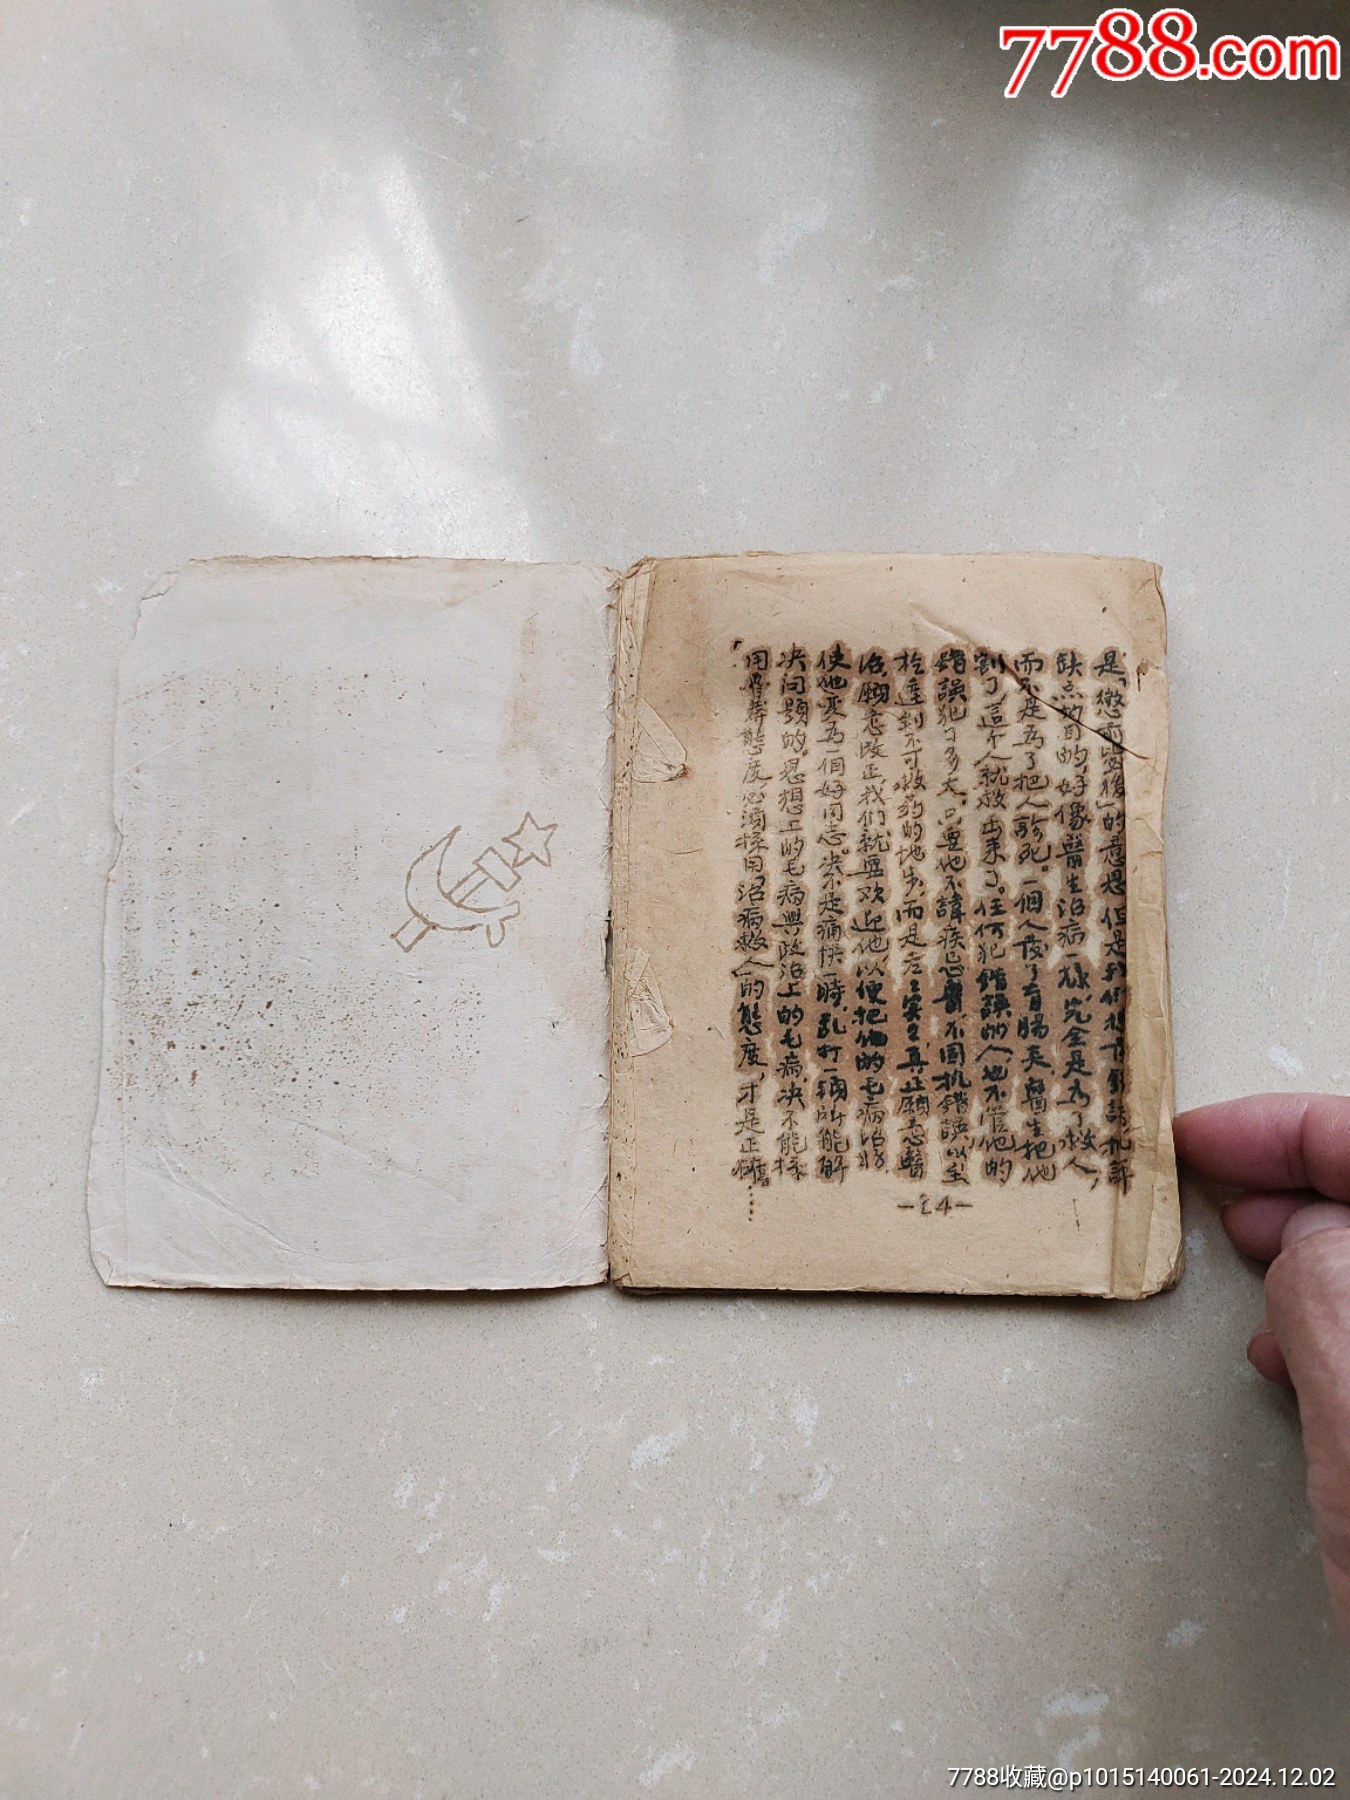 7788.com
是「懲前毖後」的意思但是我們揭
缺点的目的,好像醫生治病一樣,完全是為了救人,
而不是為了把人診死。一個人發了盲腸炎,醫生把他
割了,這个人就救出来了。任何犯錯誤的人,也不管他的
錯誤犯了多大,只要他不諱疾忌醫,不固执錯誤,以至
於達到不可救药的地步,而是老老实实,真正願意醫
治,願意改正,我們就要欢迎他,以便把他的毛病治好,
使他变為一個好同志。决不是痛快一時,乱打一頓所能解
决问题的。思想上的毛病與政治上的毛病,决不能採
用魯莽態度,必須採用「治病救人」的態度,才是正確……
-24-
7788收藏@p1015140061-2024.12.02